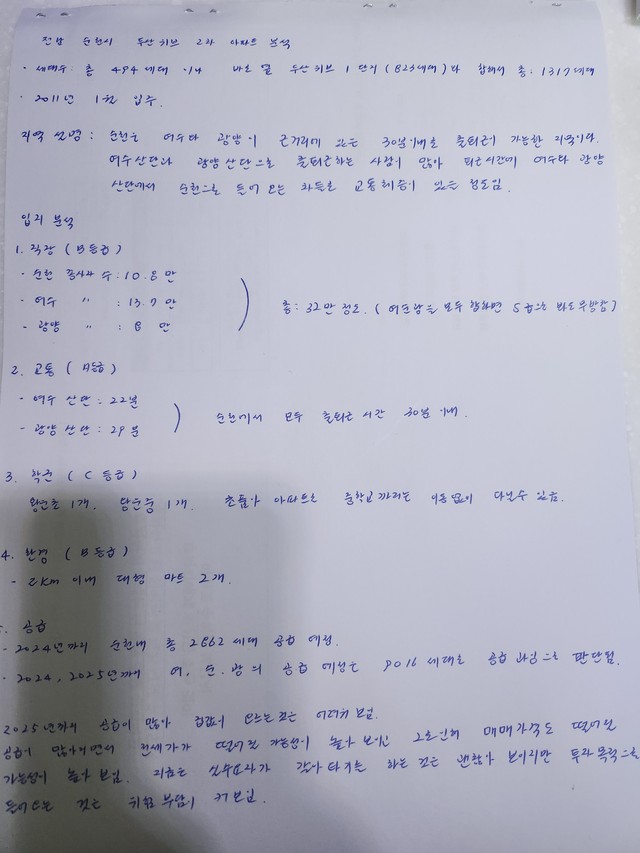 전남 순천시 두산위브 2차 아파트 분석
· 세대수: 총 494세대 이나 바로 옆 두산위브 1단지(823세대)와 합해서 총: 1317세대
· 2011년 1월 입주.
지역 설명: 순천은 여수와 광양이 근거리에 있는 30분이내로 출퇴근이 가능한 지역이다.
여수산단과 광양산단으로 출퇴근하는 사람이 많아 퇴근시간에 여수와 광양
산단에서 순천으로 들어오는 차들로 교통체증이 있는 정도임.
입지 분석
1. 직장 (B등급)
- 순천 종사자 수: 10.8만
- 여수 〃 : 13.7만
- 광양 〃 : 8만
총: 32만 정도. (여순광을 모두 합하면 S급으로 봐도 무방함)
2. 교통 (A등급)
- 여수 산단: 22분
- 광양 산단: 29분
순천에서 모두 출퇴근 시간 30분 이내.
3. 학군 (C등급)
왕운초 1개, 왕운중 1개. 초품아 아파트로 중학교까지는 이동없이 다닐수 있음.
4. 환경 (B등급)
- 2km 이내 대형 마트 2개.
5. 공급
- 2024년까지 순천내 총 2862세대 공급 예정.
- 2024, 2025년까지 여.순.광의 공급 예정은 9016세대로 공급 과잉으로 판단됨.
2025년까지 공급이 많아 집값이 오르는 것은 어려워 보임.
공급이 많아지면서 전세가가 떨어질 가능성이 높아 보이고 그로인해 매매가격도 떨어질
가능성이 높아 보임. 지금은 실수요자가 갈아타기를 하는 것은 괜찮아 보이지만 투자목적으로
들어오는 것은 위험 부담이 커보임.